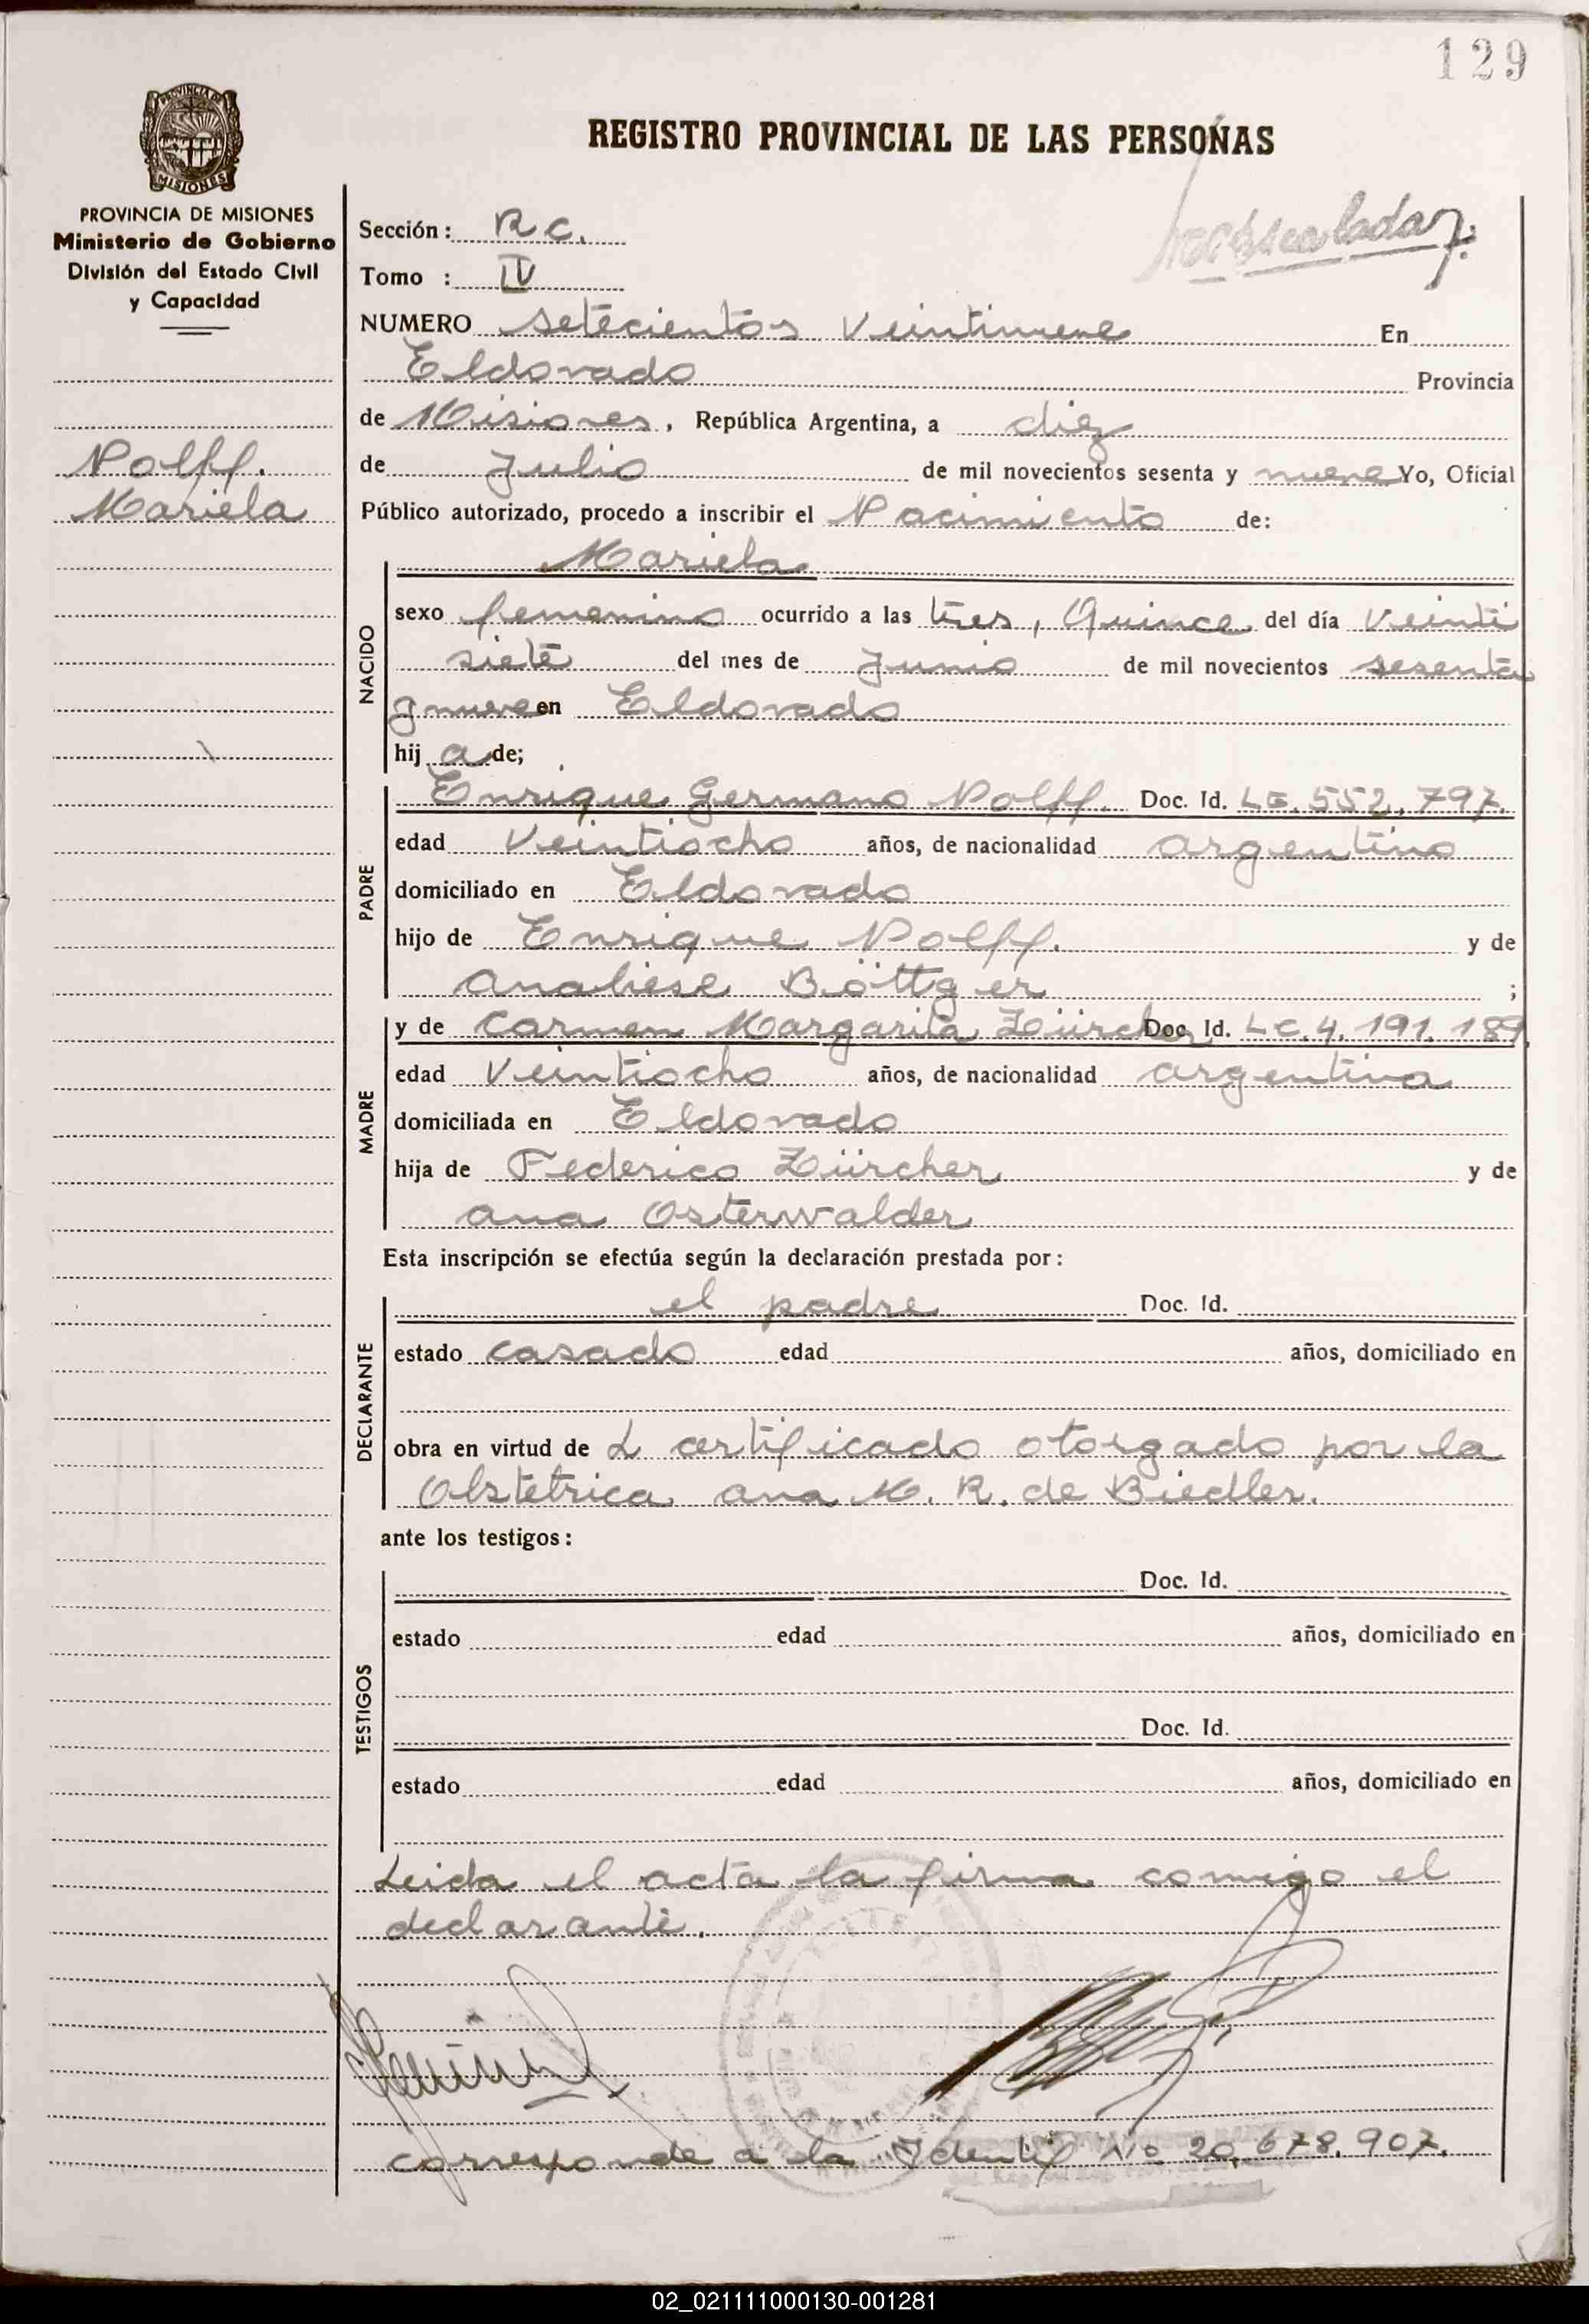 129
REGISTRO PROVINCIAL DE LAS PERSONAS
PROVINCIA DE MISIONES
Ministerio de Gobierno
División del Estado Civil
y Capacidad
Sección: R C.
Tomo : IV
NUMERO setecientos Veintinueve En
Eldorado Provincia
de Misiones, República Argentina, a diez
de Julio de mil novecientos sesenta y nueve Yo, Oficial
Nolff.
Mariela
Público autorizado, procedo a inscribir el Nacimiento de:
NACIDO
Mariela
sexo femenino ocurrido a las tres, Quince del día Veinti
siete del mes de Junio de mil novecientos sesenta
y nueve en Eldorado
hij a de;
PADRE
Enrique Germano Nolff. Doc. Id. LE. 552.797.
edad Veintiocho años, de nacionalidad argentino
domiciliado en Eldorado
hijo de Enrique Nolff. y de
Analiese Böttger ;
MADRE
y de Carmen Margarita Zürcher Doc. Id. LC. 4.191.189.
edad Veintiocho años, de nacionalidad argentina
domiciliada en Eldorado
hija de Federico Zürcher y de
Ana Osterwalder
Esta inscripción se efectúa según la declaración prestada por:
DECLARANTE
el padre Doc. Id.
estado casado edad años, domiciliado en
obra en virtud de L certificado otorgado por la
Obstetrica Ana M. R. de Biedler.
ante los testigos:
TESTIGOS
Doc. Id.
estado edad años, domiciliado en
Doc. Id.
estado edad años, domiciliado en
Leida el acta la firma conmigo el
declarante.
corresponde a la Identif Nº 20.678.907.
02_021111000130-001281